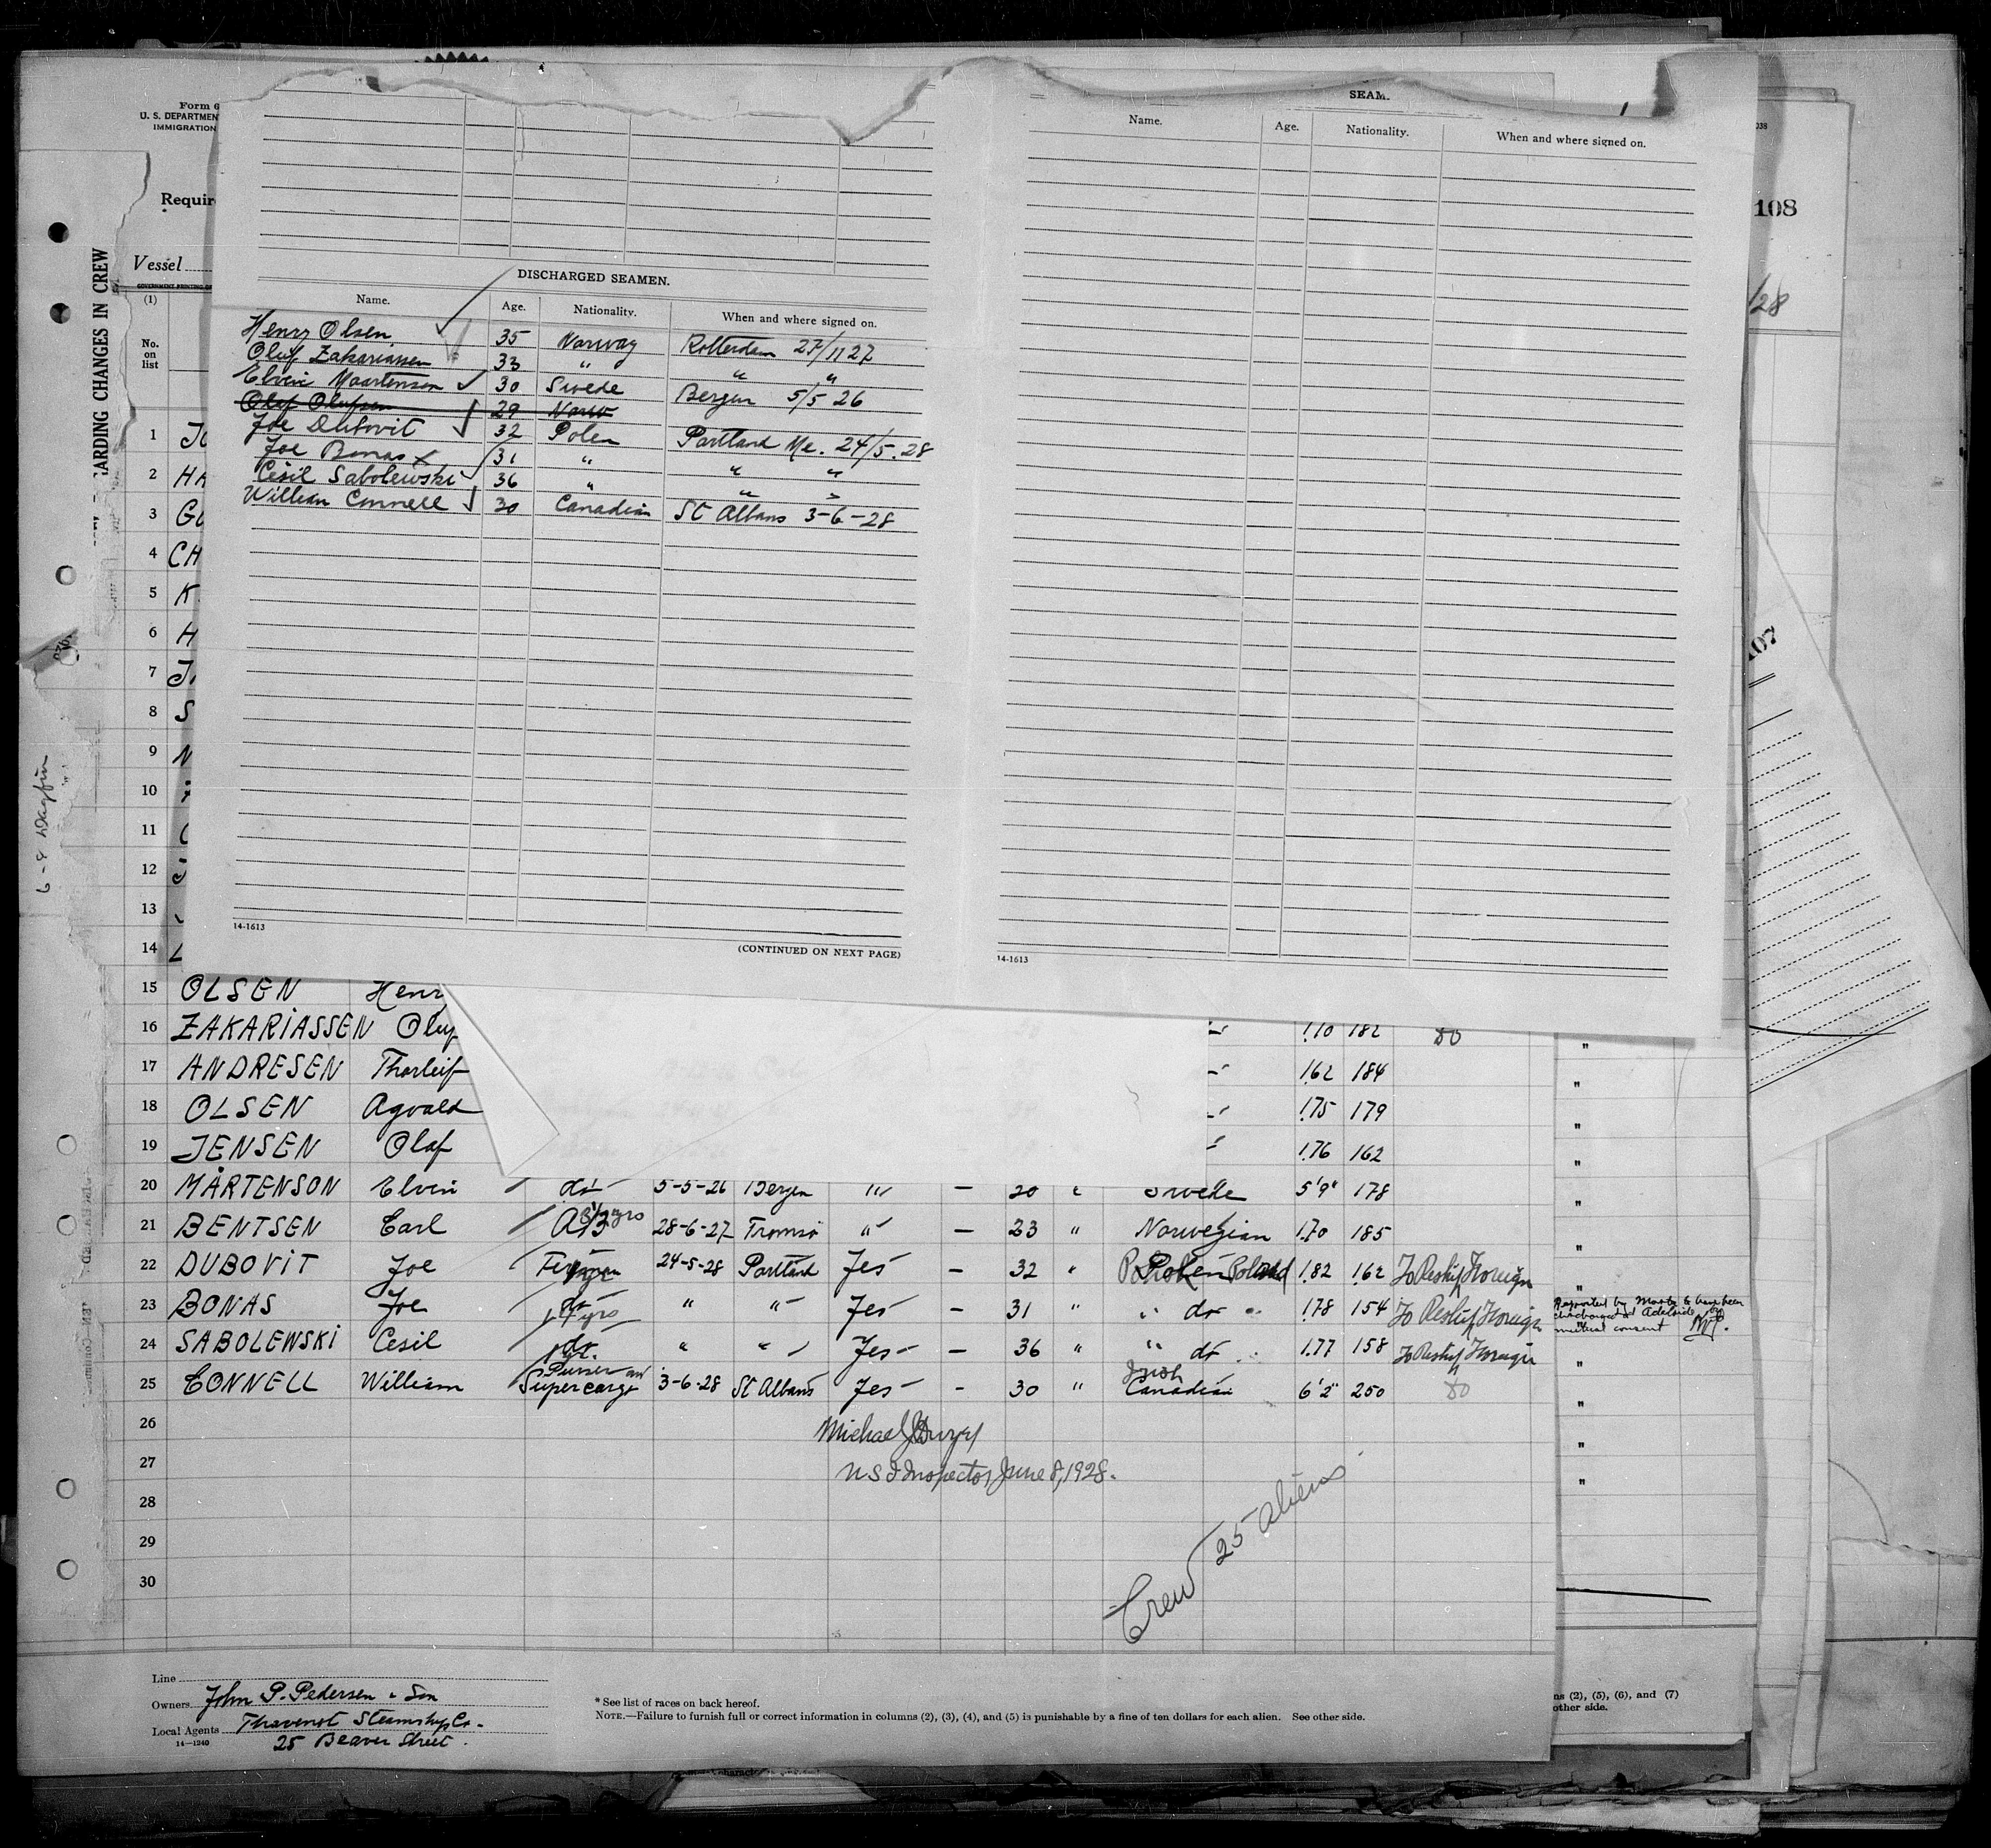 Form 6
U. S. DEPARTMEN
IMMIGRATION
Requir
Vessel
(1)
No.
on
list
ARDING CHANGES IN CREW
SEAM.
Name. Age. Nationality. When and where signed on.
108
/28
107
DISCHARGED SEAMEN.
Name. Age. Nationality. When and where signed on.
Henry Olsen 35 Norway Rotterdam 27/11 27
Oluf Zakariassen 33 " " "
Elvin Maartenson 30 Swede Bergen 5/5 26
Olaf Olufsen 29 Norw
Joe Dubovit 32 Polen Portland Me. 24/5.28
Joe Bonas x 31 " " "
Cesil Sabolewski 36 " " "
William Connell 30 Canadian St Albans 3-6-28
14-1613
(CONTINUED ON NEXT PAGE)
14-1613
1 JO
2 HA
3 GU
4 CH
5 K
6 H
7 J
8 S
9 N
10
11
12
13
14 L
15 OLSEN Henr
16 ZAKARIASSEN Oluf 1.70 182 do "
17 ANDRESEN Thorleif 1.62 184 "
18 OLSEN Agvald 1.75 179 "
19 JENSEN Olaf 1.76 162 "
20 MÅRTENSON Elvin do 5-5-26 Bergen " - 30 " Swede 5'9" 178 "
21 BENTSEN Earl AB 28-6-27 Tromsö " - 23 " Norwegian 1.70 185 "
22 DUBOVIT Joe Fireman 24-5-28 Portland Yes - 32 " Polen Poland 1.82 162 To Reship Foreign "
23 BONAS Joe do " " Yes - 31 " " do " 1.78 154 To Reship Foreign
Reported by Master to have been
discharged at Adelaide by
mutual consent
24 SABOLEWSKI Cesil do " " Yes - 36 " " do 1.77 158 To Reship Foreign "
25 CONNELL William Purser and Supercargo 3-6-28 St Albans Yes - 30 " Irish Canadian 6'2" 250 do "
26
27
28
29
30
Michael J
U S I Inspector June 8, 1928.
Crew 25 aliens
Line
Owners John P. Pedersen & Son
Local Agents Thavenot Steamship Co.
14-1240
25 Beaver Street.
* See list of races on back hereof.
NOTE.—Failure to furnish full or correct information in columns (2), (3), (4), and (5) is punishable by a fine of ten dollars for each alien. See other side.
ns (2), (5), (6), and (7)
other side.
6-8 Dagfin